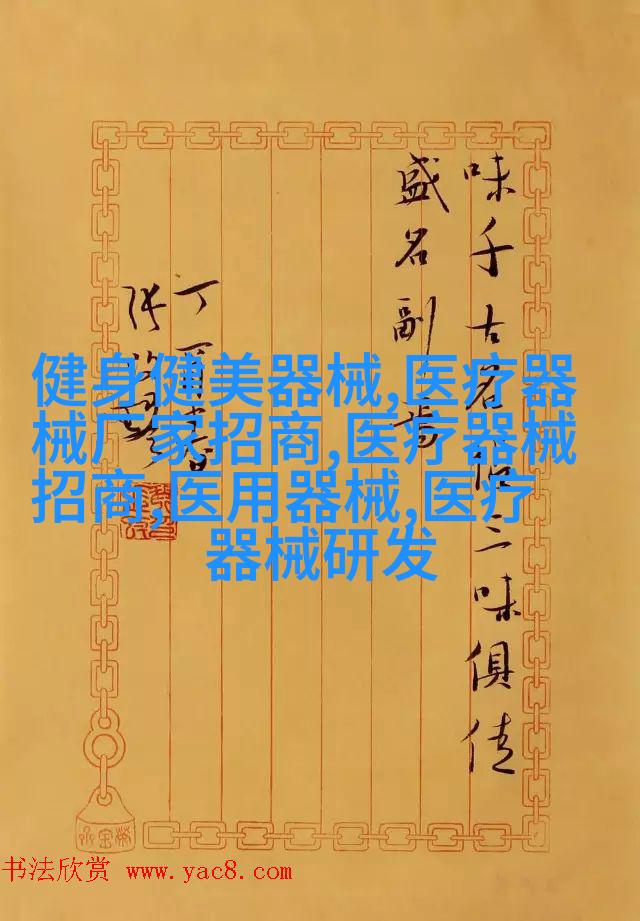 味千古名帖三味俱佳
盛名副
丁酉春
张
健身健美器械,医疗器
械厂家招商,医疗器械
招商,医用器械,医疗
器械研发
书法欣赏 www.yac8.com